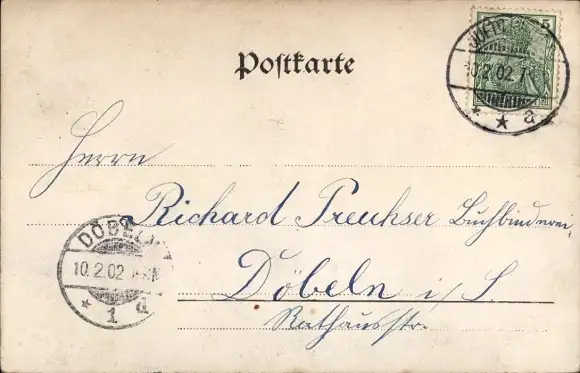 5
10.2.02
* * a
Postkarte
Herrn
Richard Preuhser Buchbinderei,
Döbeln i/S
Rathausstr.
DÖBELN
10.2.02
* 1 d